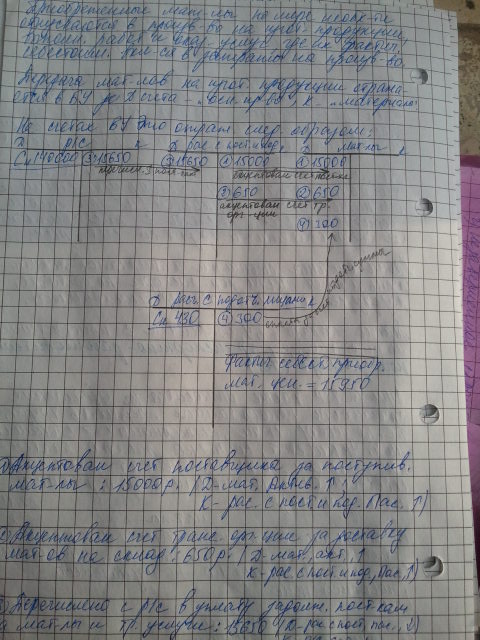 Приобретенные мат-лы по мере необх-ти
отпускаются в произв-во на изгот. продукции,
работ и оказ. услуг, где их фактич.
себестоим. вкл-ся в затраты на произв-во.
Передача мат-лов на изгот. продукции отража-
ется в БУ по Д счета - "осн. пр-во" К - "материалы"
На счетах БУ это отраж. след. образом:
Д р/с К Д рас. с пост. и под. К Д мат-лы К
Сн 140000 ③ 15650 ③ 15650 ① 15000 ① 15000
акцептован счет
③ 650 ② 650
акцептован счет тр.
орг-ции
④ 300
Д расч. с подотч. лицами К
Сн 430 ④ 300
подотч. суммы
Фактич. себест. приобр.
мат. цен. = 15950
Акцептован счет поставщика за поступив.
мат-лы: 15000р. (Д-мат. Актив. ↑
К-рас. с пост и под. Пас. ↑)
Акцептован счет транс. орг-ции за доставку
мат-ов на склад: 650р. (Д-мат, акт, ↑
К-рас. с пост и под, Пас, ↑)
Перечислено с р/с в уплату задолж. пост-кам
за мат-лы и тр. услуги: 15650 (Д-рас. с пост, пас.